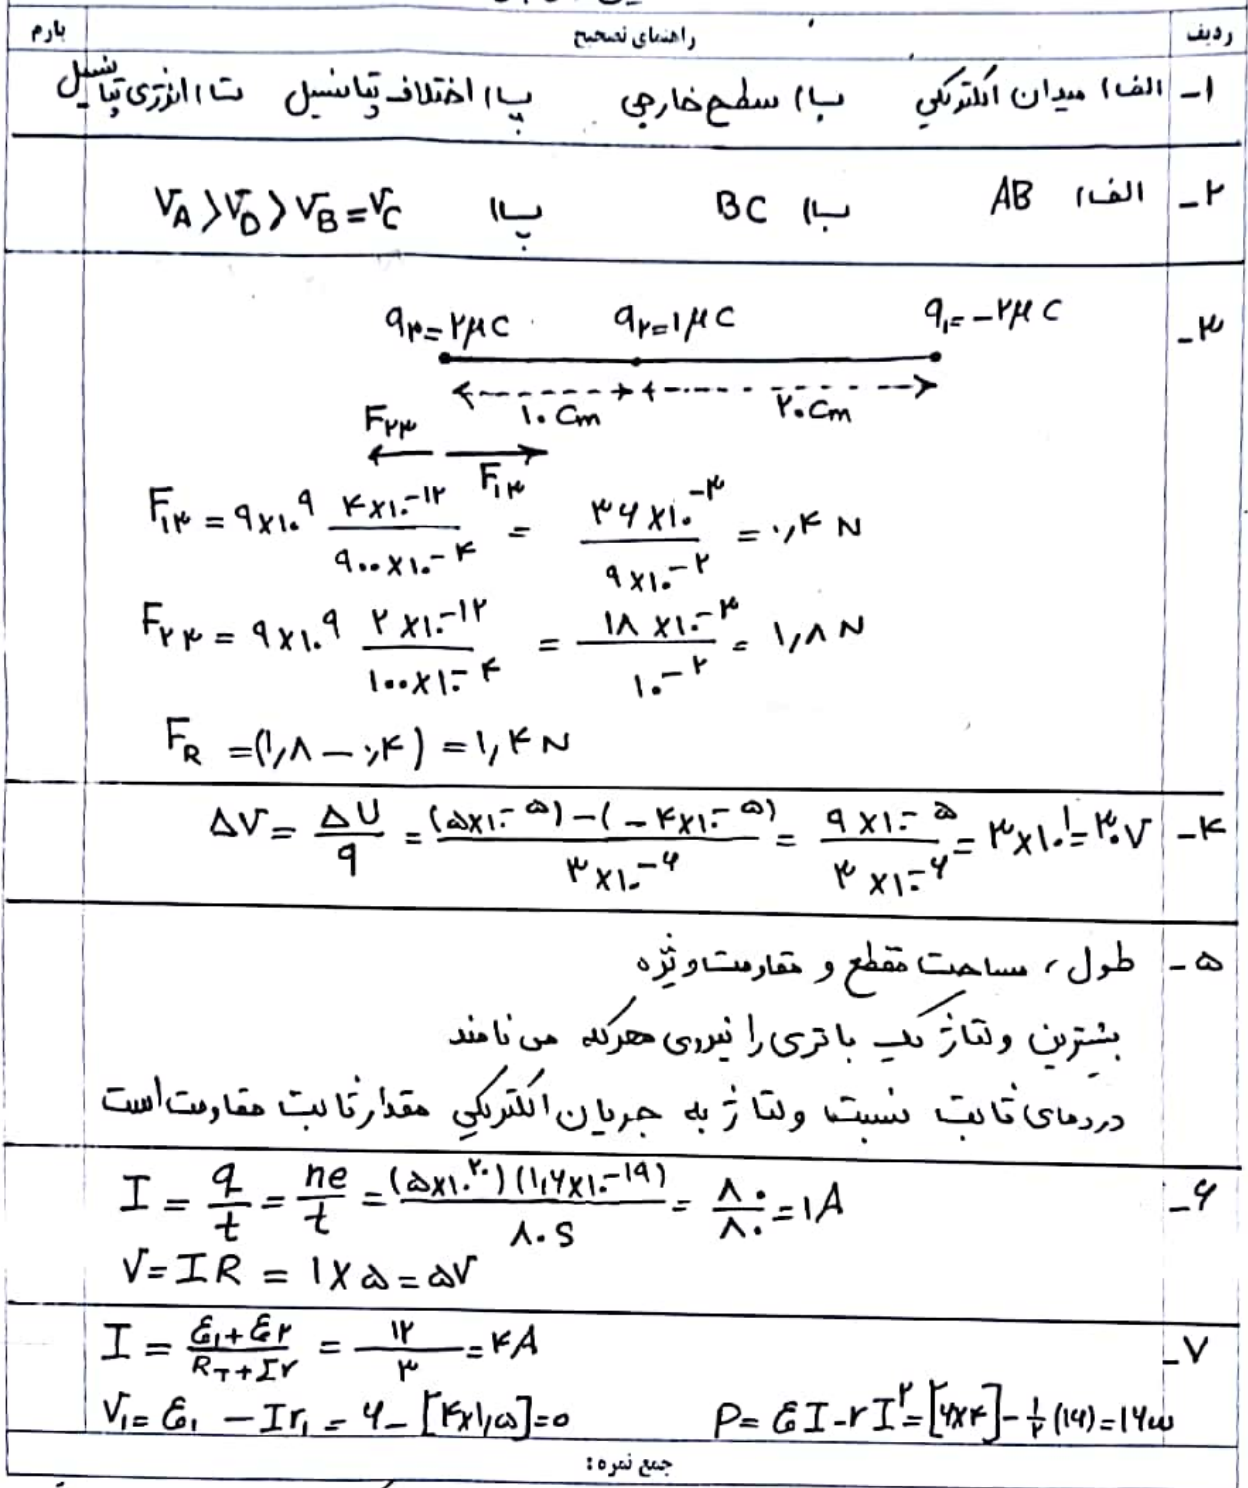 ردیف راهنمای تصحیح بارم
۱- الف) میدان الکتریکی ب) سطح خارجی پ) اختلاف پتانسیل ت) انرژی پتانسیل
۲- الف) AB ب) BC پ) V_A > V_D > V_B = V_C
۳-
q_۳=۲μC q_۲=۱μC q_۱=-۲μC
۱۰ Cm ۲۰ Cm
F_۲۳
F_۱۳
F_۱۳ = ۹×۱۰^۹ (۴×۱۰^-۱۲)/(۹۰۰×۱۰^-۴) = (۳۶×۱۰^-۳)/(۹×۱۰^-۲) = ۰,۴ N
F_۲۳ = ۹×۱۰^۹ (۲×۱۰^-۱۲)/(۱۰۰×۱۰^-۴) = (۱۸×۱۰^-۳)/(۱۰^-۲) = ۱,۸ N
F_R = (۱,۸ - ۰,۴) = ۱,۴ N
۴- ΔV = ΔU/q = ((۵×۱۰^-۵)-(-۴×۱۰^-۵))/(۳×۱۰^-۶) = (۹×۱۰^-۵)/(۳×۱۰^-۶) = ۳×۱۰^۱ = ۳۰V
۵- طول، مساحت مقطع و مقاومت ویژه
بیشترین ولتاژ یک باتری را نیروی محرکه می نامند
در دمای ثابت نسبت ولتاژ به جریان الکتریکی مقدار ثابت مقاومت است
۶- I = q/t = ne/t = ((۵×۱۰^۲۰)(۱,۶×۱۰^-۱۹))/(۸۰ S) = ۸۰/۸۰ = ۱A
V = IR = ۱×۵ = ۵V
۷- I = (ε_۱+ε_۲)/(R_T+Σr) = ۱۲/۳ = ۴A
V_۱ = ε_۱ - Ir_۱ = ۶ - [۴×۱,۵] = ۰ P = εI - rI^۲ = [۶×۴] - ۱/۲ (۱۶) = ۱۶w
جمع نمره: